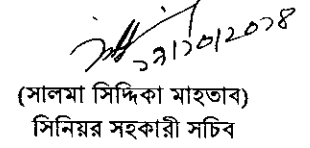 ২১/১০/২০১৪
(সালমা সিদ্দিকা মাহতাব)
সিনিয়র সহকারী সচিব